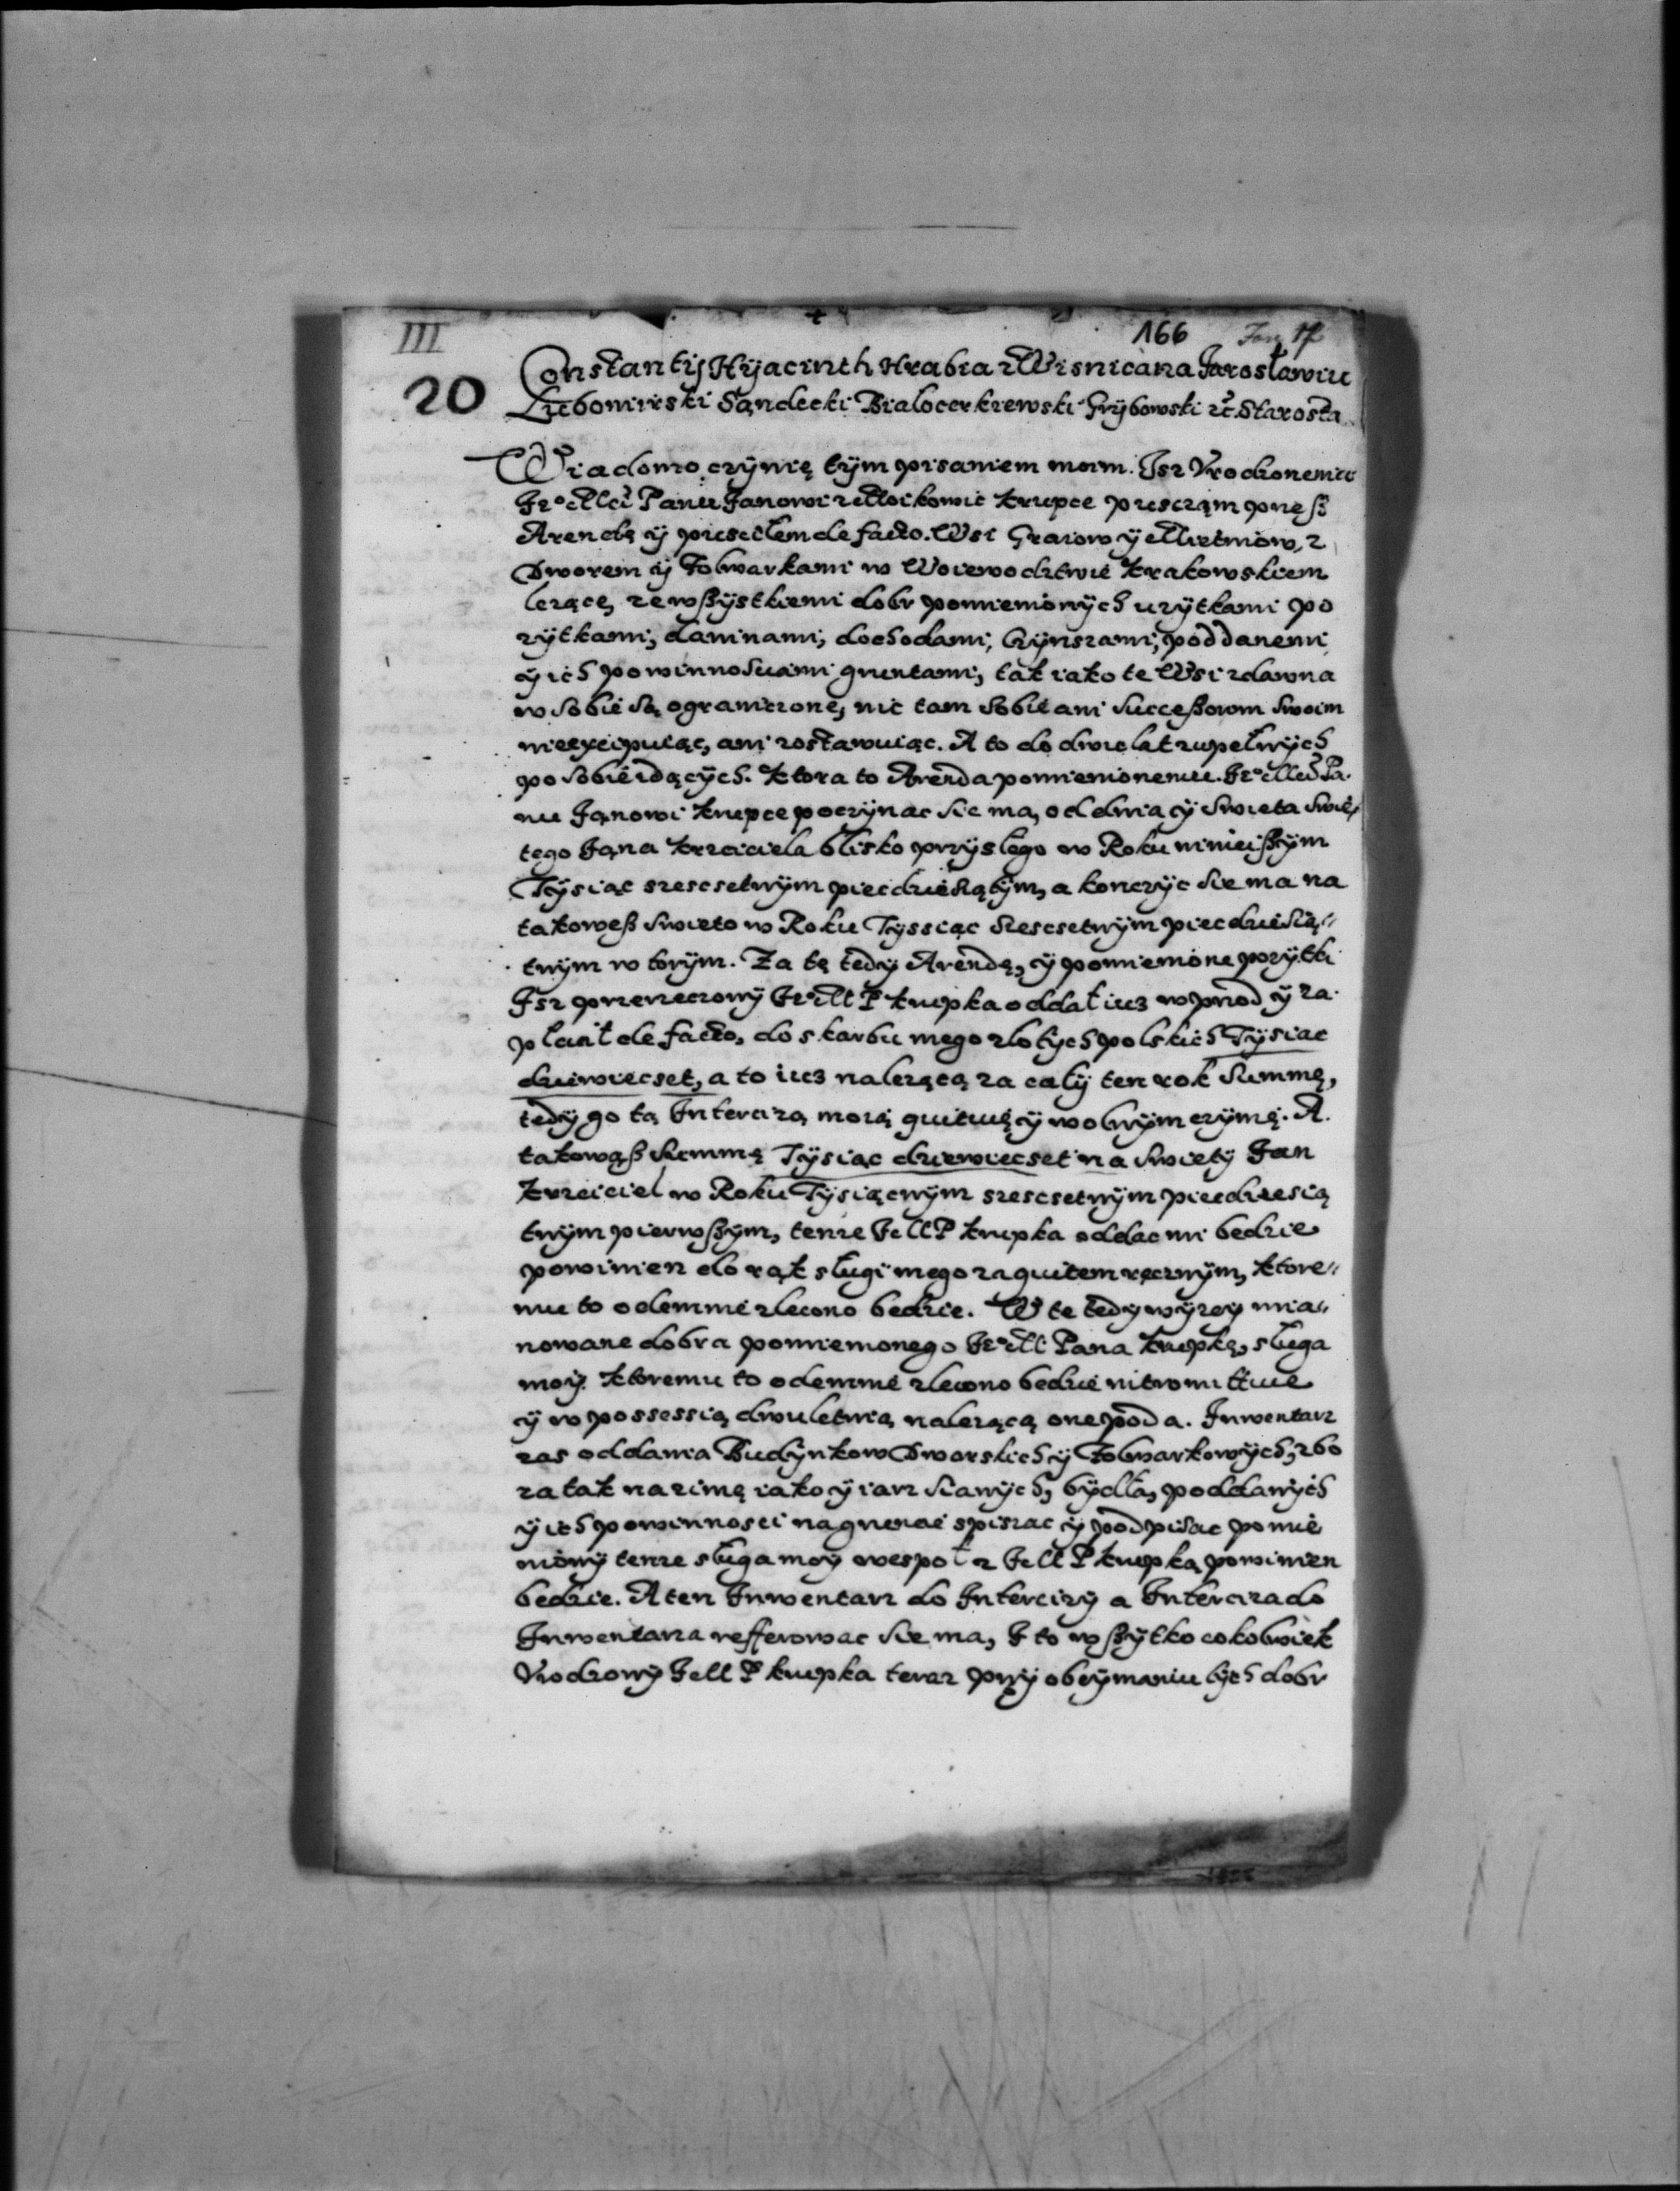 III
166
20
Constantij Hyjacinth Hrabia z Wisnicza na Jarosławiu
Lubomirski Sandecki Bialocerkiewski Grÿbowski etc. Starosta
Wiadomo czÿnię tÿm pisaniem moim. Isz Vrodzonemu
Je° Mci Panu Janowi z Moikowic krupce pusczam pneß
Arendę ÿ puscilem de facto. Wsi Graiow ÿ Mietniow, z
Dworem ÿ Folwarkami w Woiewodztwie krakowskiem
lezące, ze wßÿstkiemi dobr pomienionÿch uzÿtkami po
zÿtkami, daninami, dochodami, czÿnszami, poddanemi
ÿ ich powinnosciami gruntami, tak iako te Wsi zdawna
w sobie są ograniczone, nic tam sobie ani succeßorom swoim
nieexcipuiąc, ani zostawuiąc. A to do dwu lat zupełnÿch
po sobie idącÿch. ktora to Arenda pomienionemu. Je° Mci Pa.
nu Janowi krupce poczÿnac sie ma, od dnia ÿ swieta swię
tego Jana krzciciela blisko przÿslego w Roku ninieißÿm
Tÿsiąc szescsetnÿm piecdziesiątÿm, a konczÿc sie ma na
takoweß swieto w Roku Tyssiąc szescsetnÿm piecdziesią„
tnÿm wtorÿm. Za tę tedÿ Arendę, ÿ pomienione pozÿtki
Isz pomieniony Je° M P krupka oddał iusz wprod ÿ za.
płacił de facto, do skarbu mego zlotÿch polskich Tÿsiac
dziewiecset, a to iusz nalezącą za calÿ ten rok summę,
tedÿ go tą Intercizą moią quituię ÿ wolnÿm czÿnię. A.
takowąß summę Tÿsiąc dziewiecset na swietÿ Jan
krzciciel w Roku Tÿsiącnÿm szescsetnÿm piecdziesią
tnÿm pierwßÿm, tenze Je M P krupka oddac mi bedzie
powinien do rąk slugi mego za quitem ręcznÿm, ktore„
mu to odemnie zlecono bedzie. W te tedÿ wÿzeÿ mia„
nowane dobra pomienionego Je° M Pana krupkę, sługa
moÿ ktoremu to odemnie zlecono bedzie intromittuie
ÿ w possessią dwuletnią nalezącą one poda. Inwentarz
zas oddania Budÿnkow Dworskich ÿ Folwarkowÿch, zbo
za tak na zimę iako ÿ iarz sianÿch, bÿdła, poddanÿch
ÿ ich powinnosci na gruncie spiszac ÿ podpisac pomie
nionÿ tenze sługa moÿ wespoł z Je M P krupką powinien
bedzie. A ten Inwentarz do Intercizÿ a Interciza do
Inwentarza refferowac sie ma, I to wßÿtko cokolwiek
Vrodzonÿ Je M P krupka teraz przÿ obeÿmaniu tÿch dobr